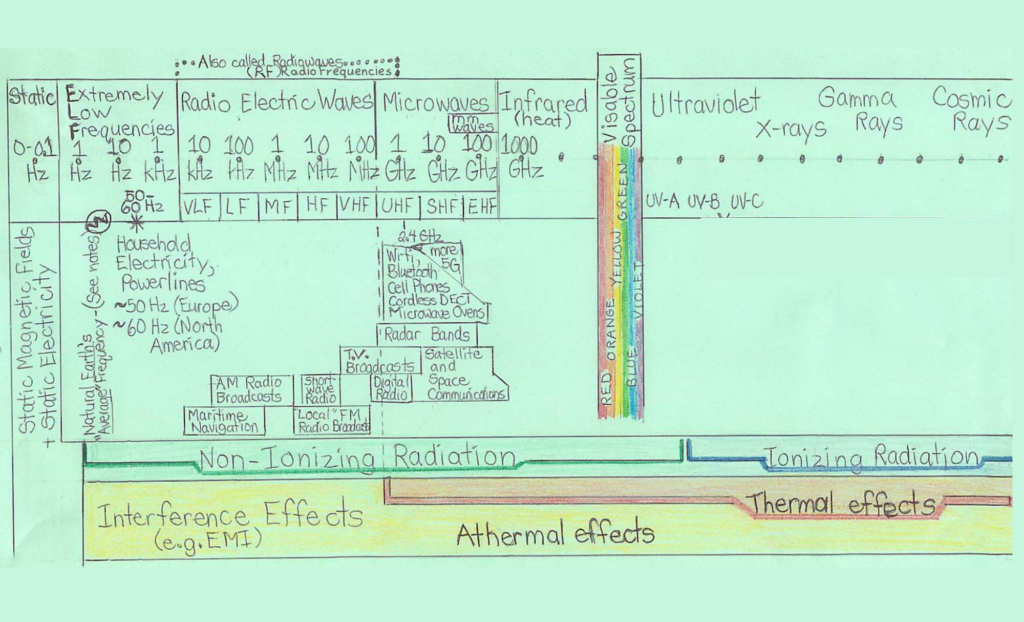 Also called Radiowaves
(RF) Radio frequencies
Static
0-0.1
Hz
Extremely
Low
Frequencies
1 10 1
Hz Hz kHz
50-
60 Hz
Radio Electric Waves
10 100 1 10 100
kHz kHz MHz MHz MHz
VLF LF MF HF VHF UHF SHF EHF
Microwaves
mm
waves
1 10 100
GHz GHz GHz
Infrared
(heat)
1000
GHz
Visable
Spectrum
RED ORANGE YELLOW GREEN
BLUE VIOLET
Ultraviolet
X-rays
Gamma
Rays
Cosmic
Rays
UV-A UV-B UV-C
Static Magnetic Fields
+ Static Electricity
Natural Earth's
"Average" Frequency - (See notes)
Household
Electricity,
Powerlines
~50 Hz (Europe)
~60 Hz (North
America)
2.4 GHz
Wi-fi,
more
5G
Bluetooth
Cell Phones
Cordless DECT
Microwave Ovens
Radar Bands
T.V.
Broadcasts
Satellite
and
Space
Communications
AM Radio
Broadcasts
Short-
wave
Radio
Digital
Radio
Maritime
Navigation
Local "FM"
Radio Broadcast
Non-Ionizing Radiation
Ionizing Radiation
Interference Effects
(e.g. EMI)
Thermal effects
Athermal effects